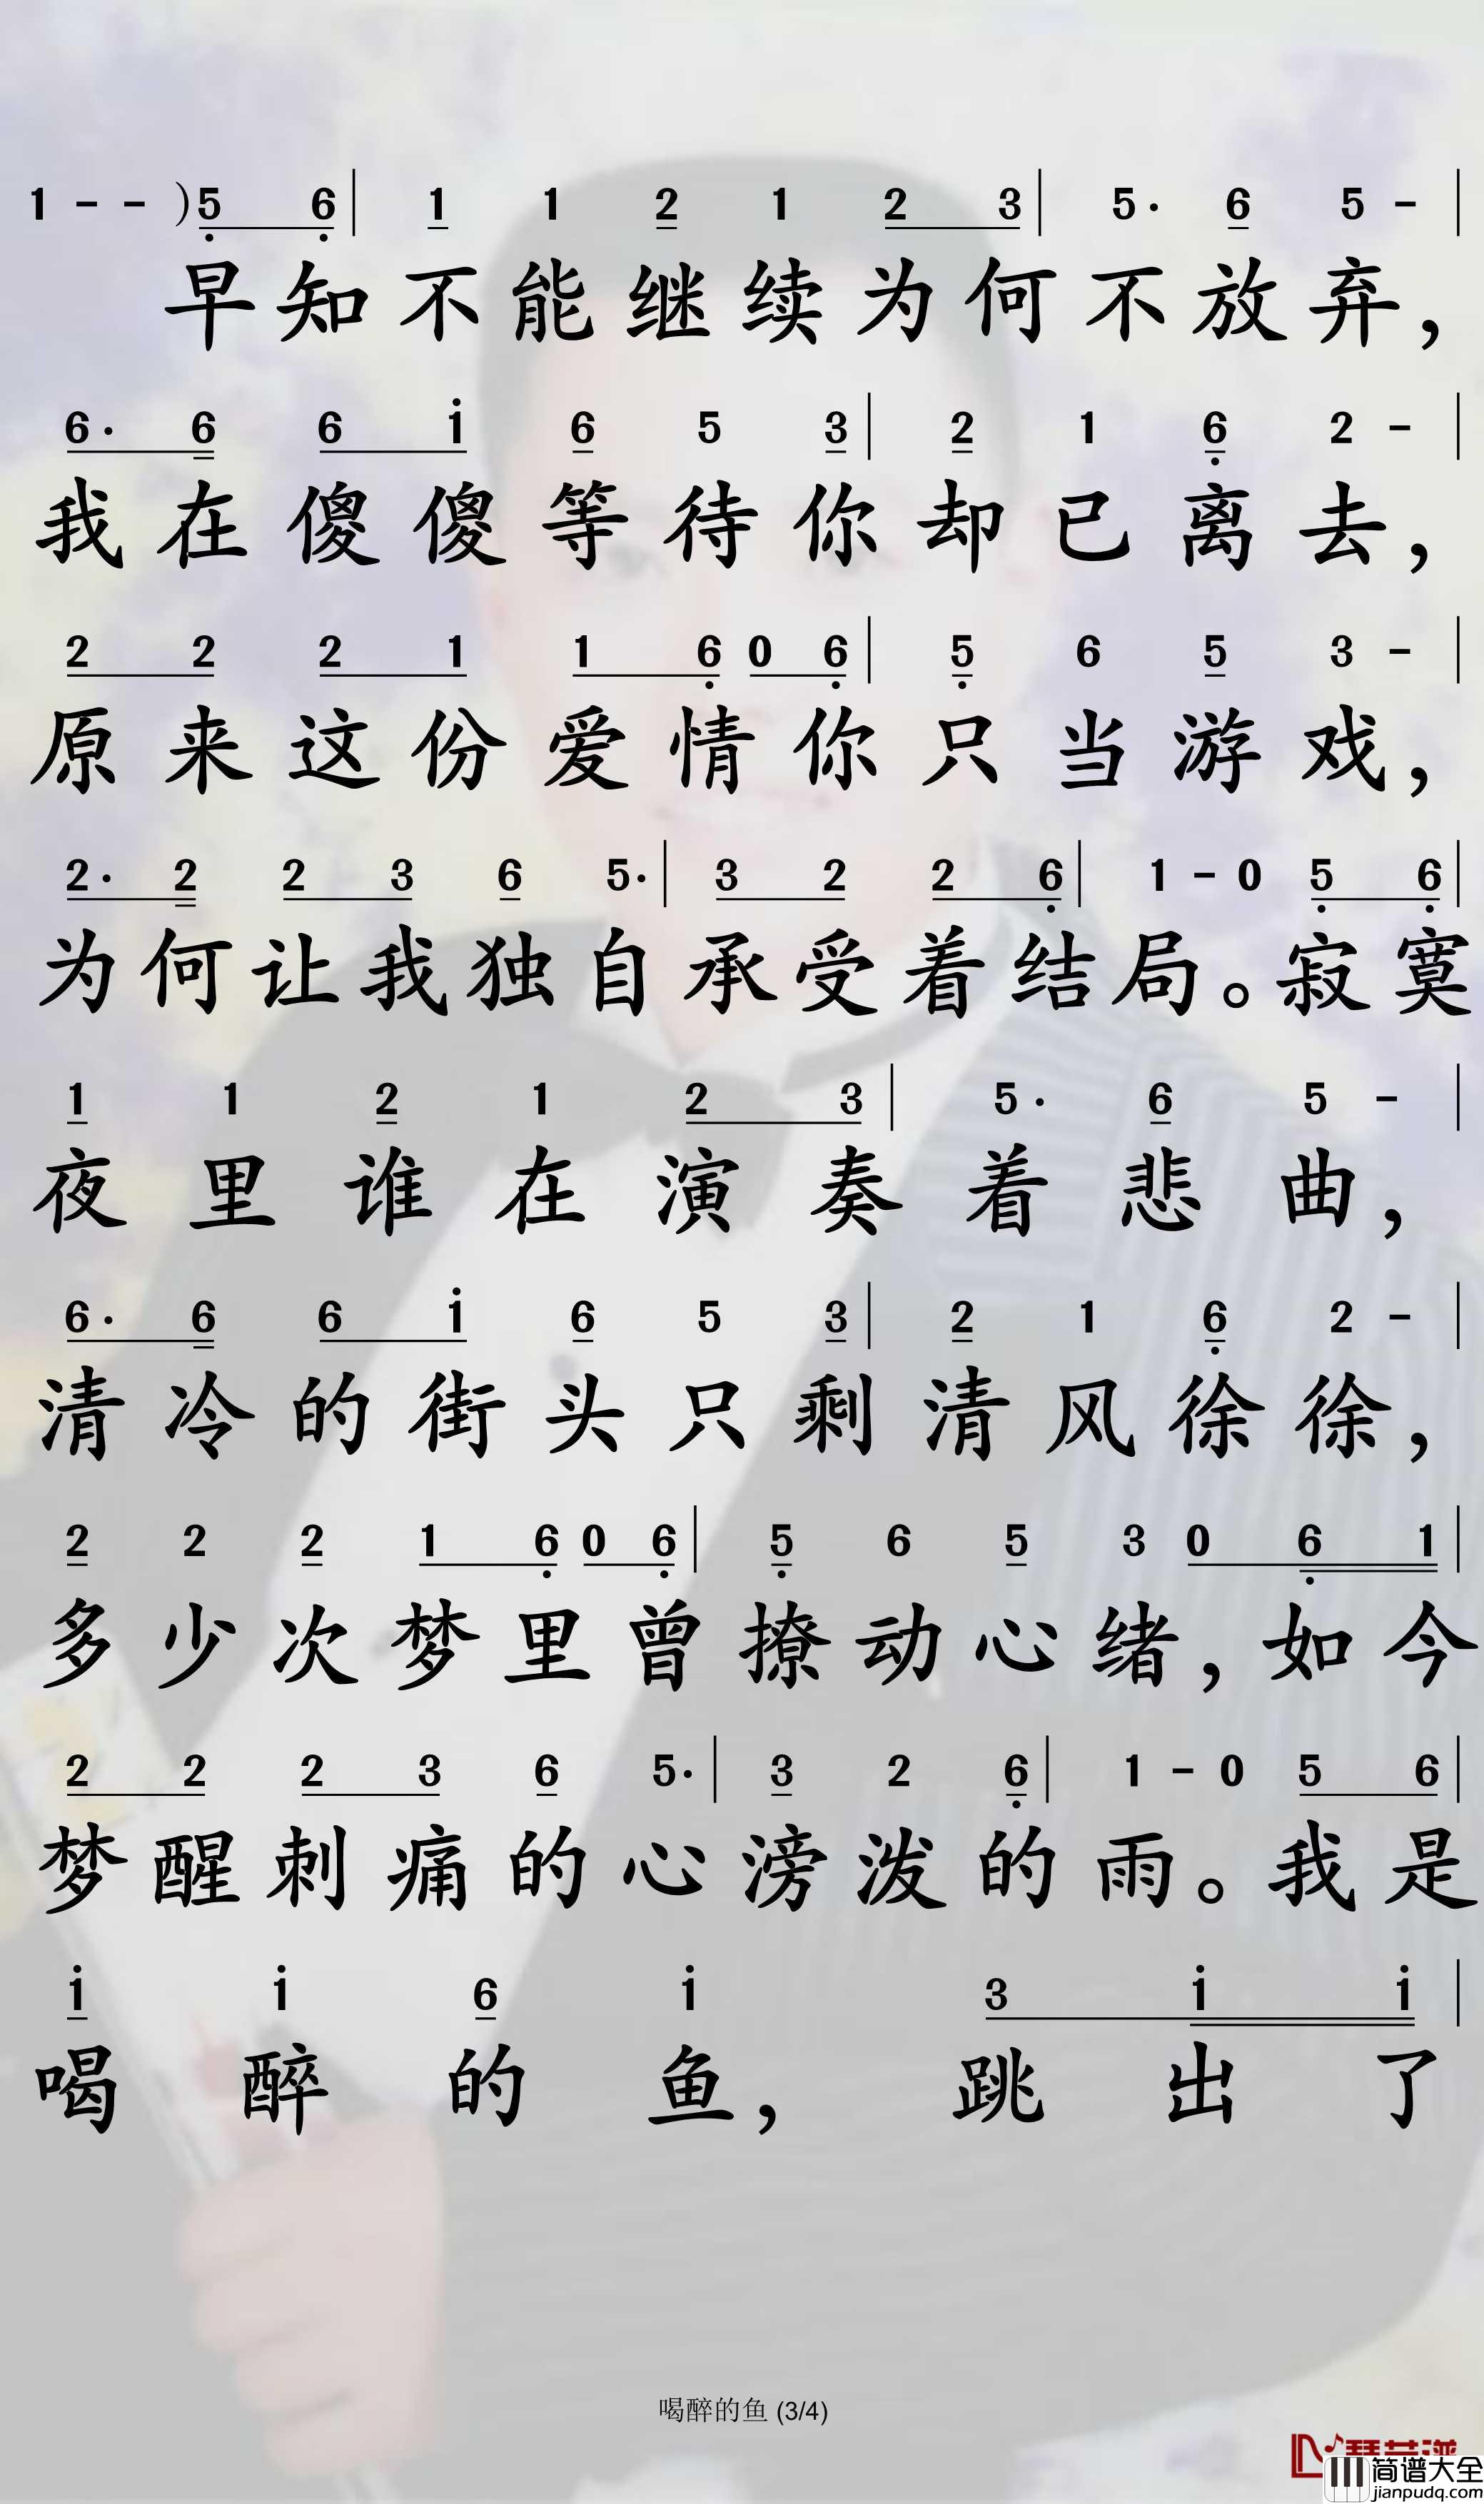 1 - - ) 5̣ 6̣ | 1 1 2 1 2 3 | 5· 6 5 - |
早知不能继续为何不放弃，
6· 6 6 i 6 5 3 | 2 1 6̣ 2 - |
我在傻傻等待你却已离去，
2 2 2 1 1 6̣ 0 6̣ | 5̣ 6 5 3 - |
原来这份爱情你只当游戏，
2· 2 2 3 6 5· | 3 2 2 6̣ | 1 - 0 5̣ 6̣ |
为何让我独自承受着结局。寂寞
1 1 2 1 2 3 | 5· 6 5 - |
夜里谁在演奏着悲曲，
6· 6 6 i 6 5 3 | 2 1 6̣ 2 - |
清冷的街头只剩清风徐徐，
2 2 2 1 6̣ 0 6̣ | 5̣ 6 5 3 0 6̣ 1 |
多少次梦里曾撩动心绪，如今
2 2 2 3 6 5· | 3 2 6̣ | 1 - 0 5 6 |
梦醒刺痛的心滂泼的雨。我是
i i 6 i 3 i i |
喝醉的鱼，跳出了
喝醉的鱼 (3/4)
简谱大全
jianpudq.com